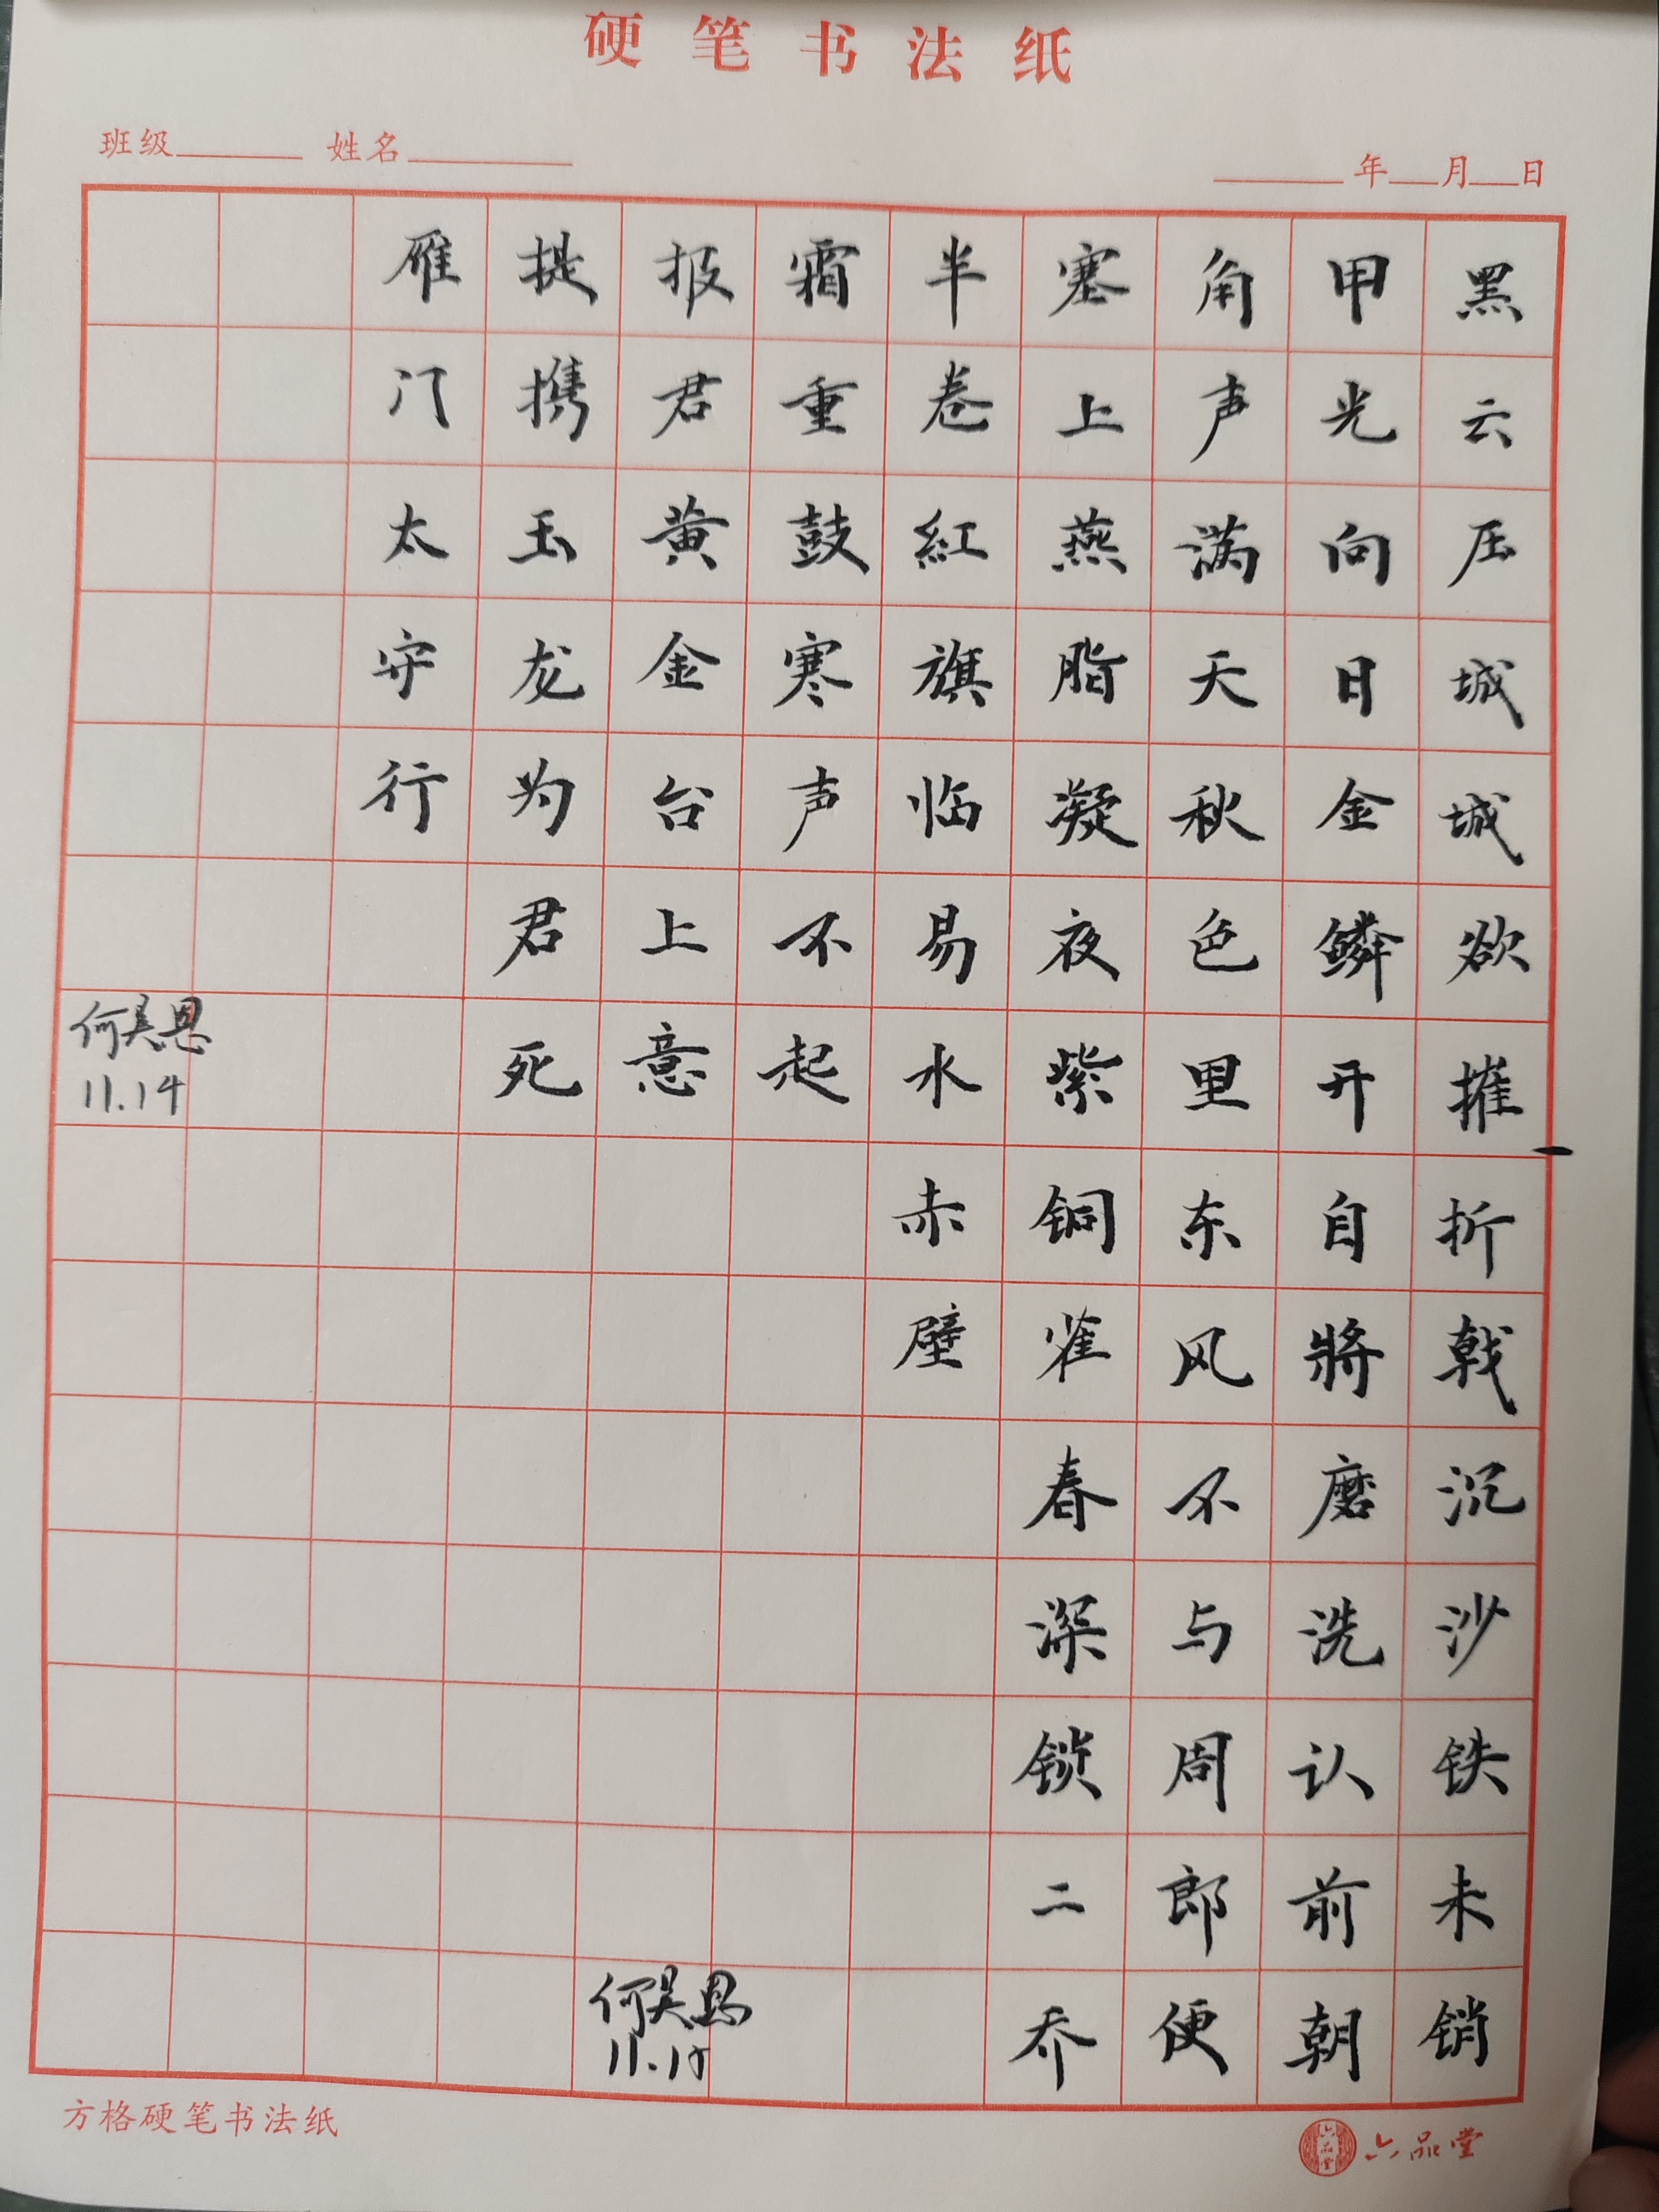 硬笔书法纸
班级 姓名 年 月 日
黑云压城城欲摧
甲光向日金鳞开
角声满天秋色里
塞上燕脂凝夜紫
半卷紅旗临易水
霜重鼓寒声不起
报君黄金台上意
提携玉龙为君死
雁门太守行
何昊恩
11.14
折戟沉沙铁未销
自將磨洗认前朝
东风不与周郎便
铜雀春深锁二乔
赤壁
何昊恩
11.15
方格硬笔书法纸
六品堂
六品堂